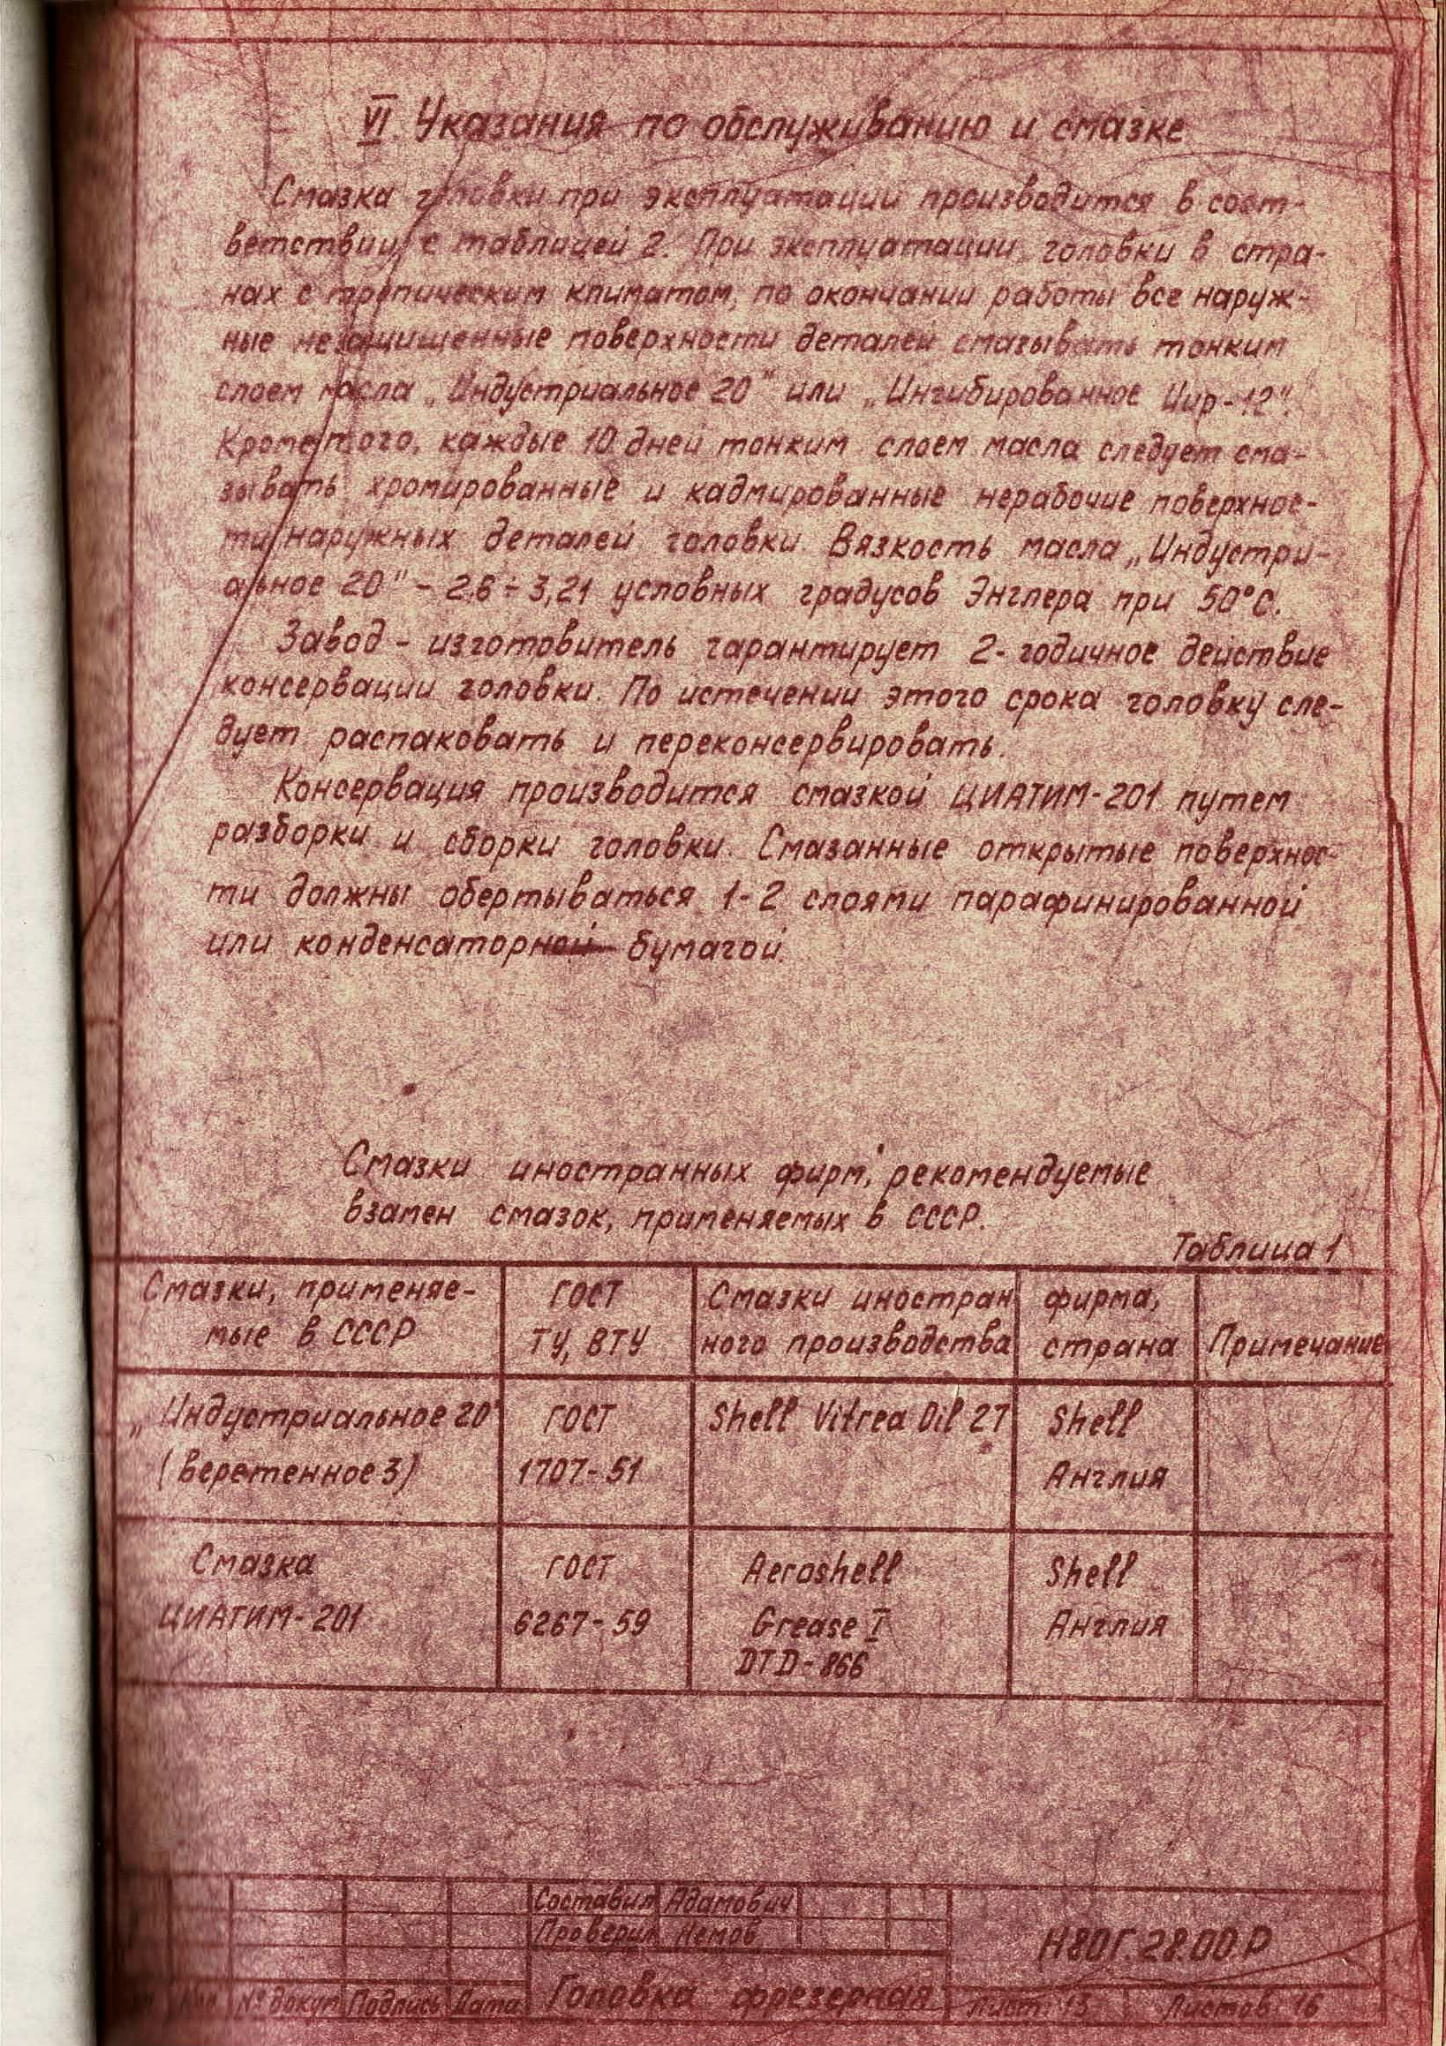 VI. Указания по обслуживанию и смазке
Смазка головки при эксплуатации производится в соот-
ветствии с таблицей 2. При эксплуатации головки в стра-
нах с тропическим климатом, по окончании работы все наруж-
ные незащищенные поверхности деталей смазывать тонким
слоем масла „Индустриальное 20" или „Ингибированное
Кроме того, каждые 10 дней тонким слоем масла следует сма-
зывать хромированные и кадмированные нерабочие поверхнос-
ти наружных деталей головки. Вязкость масла „Индустри-
альное 20" – 2,6 ÷ 3,21 условных градусов Энглера при 50°С.
Завод - изготовитель гарантирует 2-годичное действие
консервации головки. По истечении этого срока головку сле-
дует распаковать и переконсервировать.
Консервация производится смазкой ЦИАТИМ-201 путем
разборки и сборки головки. Смазанные открытые поверхнос-
ти должны обертываться 1-2 слоями парафинированной
или конденсаторной бумагой.
Смазки иностранных фирм, рекомендуемые
взамен смазок, применяемых в СССР.
Таблица 1
Смазки, применяе- ГОСТ Смазки иностран фирма,
мые в СССР ТУ, ВТУ ного производства страна Примечание
„Индустриальное 20" ГОСТ Shell Vitrea Oil 27 Shell
(веретенное 3) 1707-51 Англия
Смазка ГОСТ Aeroshell Shell
ЦИАТИМ-201 6267-59 Grease I Англия
DTD-866
Составил Адамович
Проверил Немов
Н80Г.28.00 Р
№ докум Подпись Дата Головка фрезерная Лист 13 Листов 16